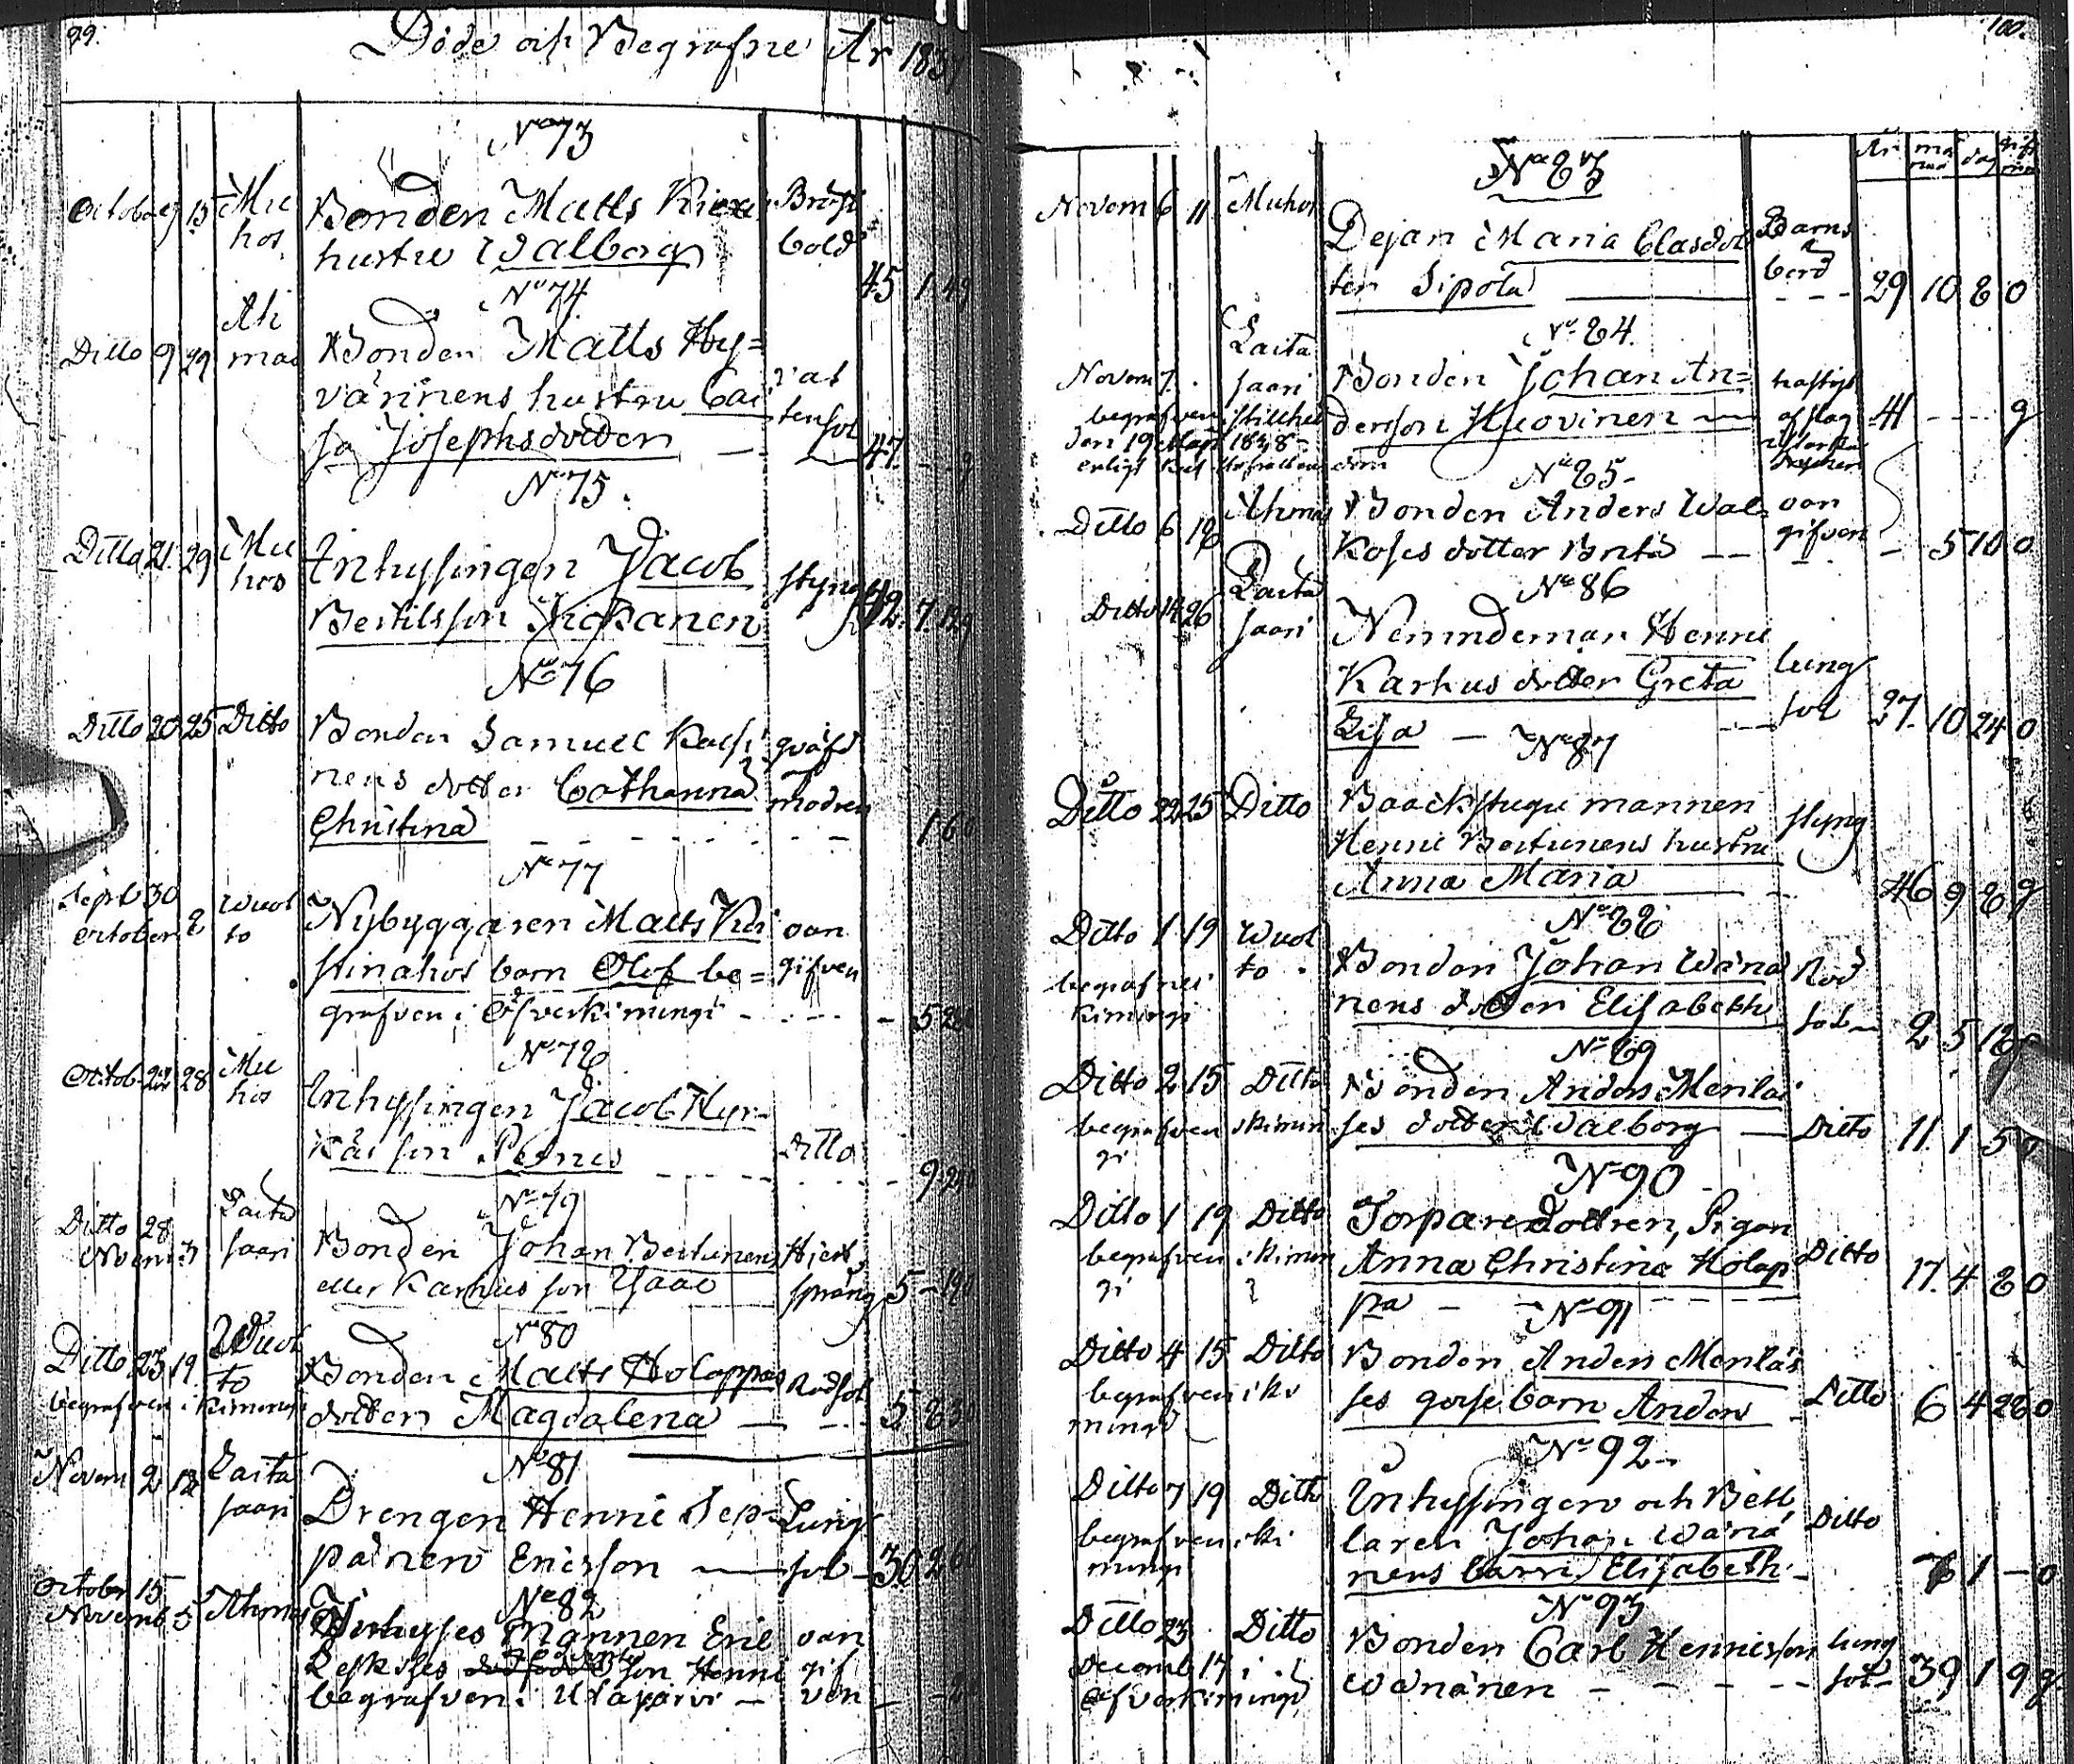 99.
Döde och Begrafne År 1837
No 73
October 9 15 Mu
hos
Bonden Matts
hustru Walborg
Bråck
bold
45 1 4 g
No 74
Ditto 9 29 Ah
mas
Bonden Matts Hy=
värinens hustru Cai
sa Josephsdotter
47 - - g
No 75.
Ditto 21. 29 Mu
hos
Inhysingen Jacob
Bertilsson
styng
42. 7. 12 g
No 76
Ditto 20 25 Ditto
Bonden Samuel
nens dotter Catharina
Christina
qväfd
af
modren
1 6 0
No 77
Sept 30
October 8
Wuol
to
Nybyggaren Matts Kri
stinahos barn Olof be=
grafven i Öfverkimingi
oan
gifven
- 5
No 78
Octob 22 28 Mu
hos
Inhysingen Jacob
son
Ditto
9
No 79
Ditto 28
Novem 7
Laita
saari
Bonden Johan Bertunens
eller Karhus son Isaac
Hjert
språng
5 - 19 0
No 80
Ditto 23 19
Wuol
to
begrafven i Kimingi
Bonden Matts Holappas
dotter Magdalena
Rödsot
5 8 3 0
No 81
Novem 2 12 Laita
saari
Drengen Henric Sep=
pänen Ericsson
Lung
sot
30 2 6 0
October 15
Novemb 5 Ahmas
No 82
Inhyses Mannen Eric
Leskises son Henric
begrafven i Utajärvi
oan
gif
ven
100.
År må
nad dag gift
No 83
Novem 6 11 Muhos
Dejan Maria Clasdot
ter Sipola
Barns
börd
29 10 8 0
No 84.
Novem 7.
Laita
saari
begrafven i stillhet
den 19 Maji 1838
enligt Kejs Hofrättens dom
Bonden Johan An=
dersson Huovinen
hastigt
af slag
starka
drycker
41 - - g
No 85
Ditto 6 12 Ahmas
Bonden Anders Wal
koses dotter Brita
oan
gifven
- 5 10 0
No 86
Ditto 14 26 Laita
saari
Nemndeman Henric
Karhus dotter Greta
Lisa
lung
sot
27. 10 24 0
No 87
Ditto 22 25 Ditto
Backstugu mannen
Henric Bertunens hustru
Anna Maria
styng
46 9 8 g
No 88
Ditto 1 19 Wuol
to
begrafnes i
Kimingi
Bonden Johan Wänä
nens dotter Elisabeth
Röd
sot
2 5 12 0
No 89
Ditto 2 15 Ditto
begrafven i Kimin
gi
Bonden Anders Meriläi
ses dotter Walborg
Ditto
11. 1 5 0
No 90
Ditto 1 19 Ditto
begrafven i Kimin
gi
Torparedottren, Pigan
Anna Christina Holap
pa
Ditto
17. 4 8 0
No 91
Ditto 4 15 Ditto
begrafven i Ki
mingi
Bonden Anders Meriläi
ses gossebarn Anders
Ditto
6 4 28 0
No 92
Ditto 7 19 Ditto
begrafven i Ki
mingi
Inhysingen och Bett
laren Johan Wänä
nens barn Elisabeth
Ditto
6 1 - 0
No 93
Ditto 23. Ditto
Decemb 17 i
Öfverkimingi
Bonden Carl Henricsson
Wänänen
lung
sot
39 1 9 g.